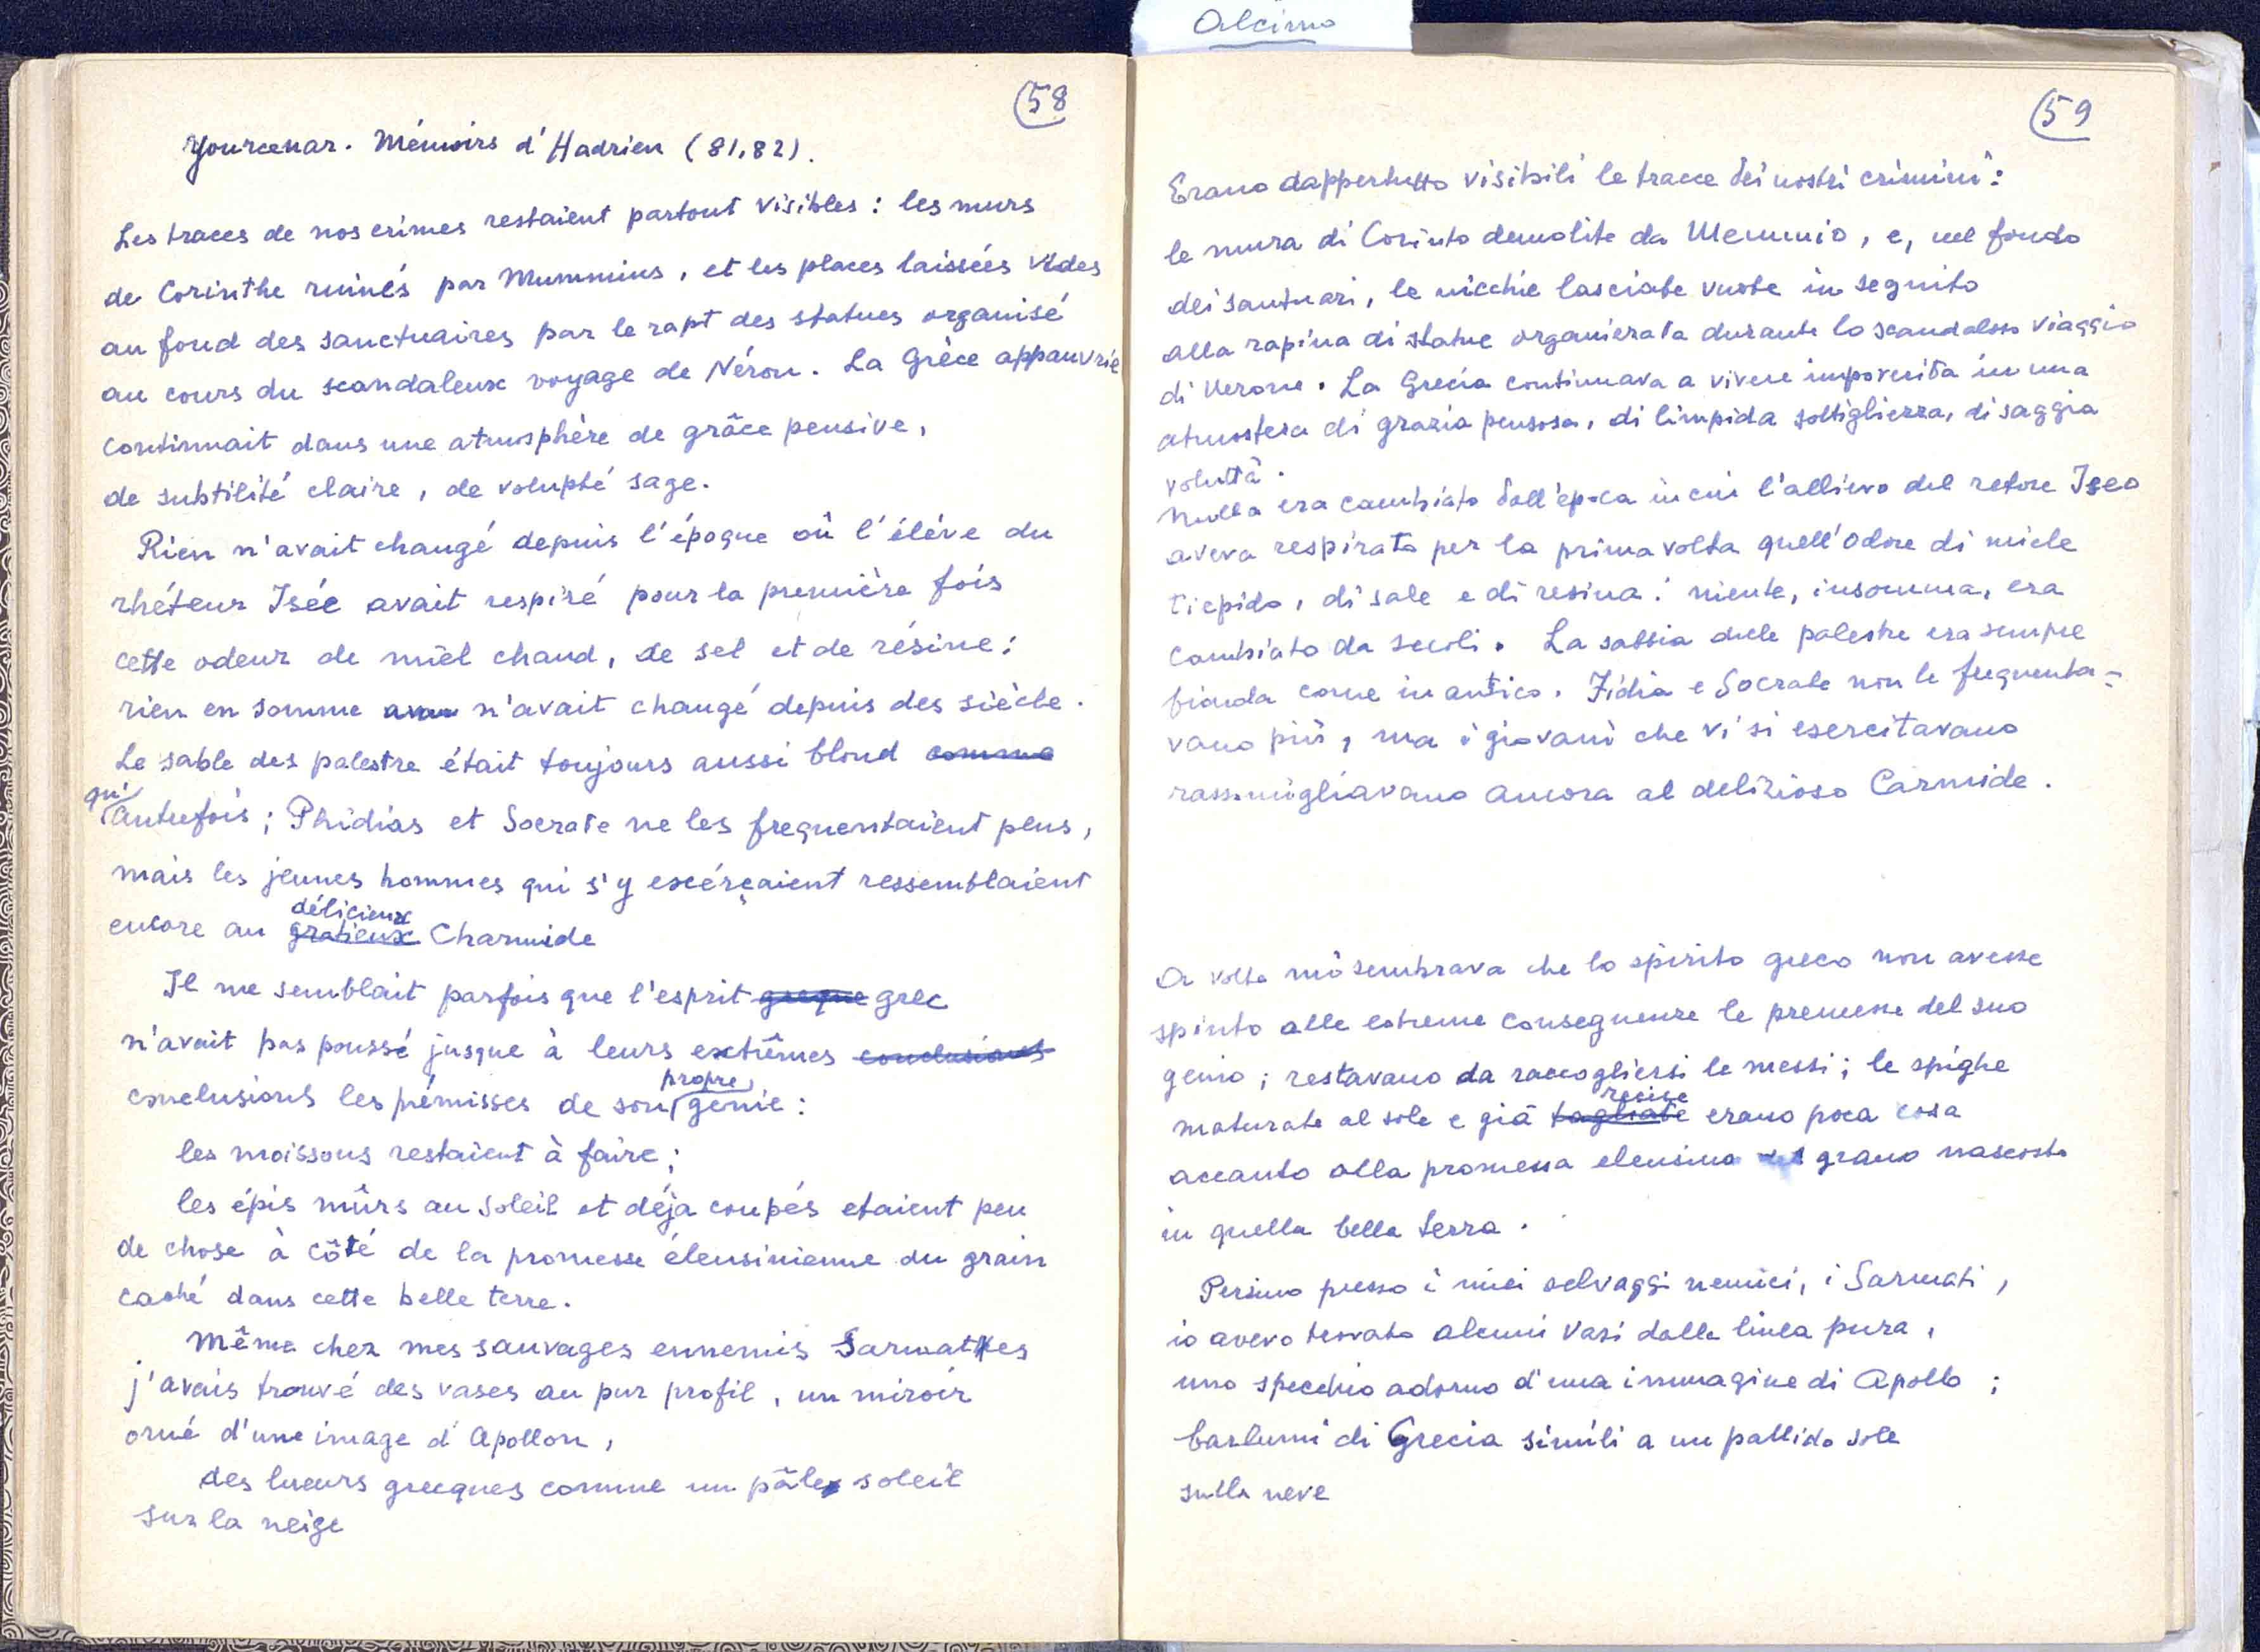 Alcimo
58
Yourcenar. Mémoirs d'Hadrien (81,82).
Les traces de nos crimes restaient partout visibles : les murs
de Corinthe ruinés par Mummius, et les places laissées vides
au fond des sanctuaires par le rapt des statues organisé
au cours du scandaleux voyage de Néron. La Grèce appauvrie
continuait dans une atmosphère de grâce pensive,
de subtilité claire, de volupté sage.
Rien n'avait changé depuis l'époque où l'élève du
rhéteur Isée avait respiré pour la première fois
cette odeur de miel chaud, de sel et de résine :
rien en somme n'avait changé depuis des siècle.
Le sable des palestre était toujours aussi blond comme
qu'
autrefois ; Phidias et Socrate ne les frequentaient plus,
mais les jeunes hommes qui s'y exérçaient ressemblaient
délicieux
encore au gratieux Charmide
Il me semblait parfois que l'esprit greque grec
n'avait pas poussé jusque à leurs extrêmes conclusions
propre
conclusions les prémisses de son génie :
les moissons restaient à faire ;
les épis mûrs au soleil et déja coupés etaient peu
de chose à côté de la promesse éleusinienne du grain
caché dans cette belle terre.
Même chez mes sauvages ennemis Sarmates
j'avais trouvé des vases au pur profil, un miroir
orné d'une image d'Apollon,
des lueurs grecques comme un pâle soleil
sur la neige
59
Erano dappertutto visibili le tracce dei nostri crimini :
le mura di Corinto demolite da Memmio, e, nel fondo
dei santuari, le nicchie lasciate vuote in seguito
alla rapina di statue organizzata durante lo scandaloso viaggio
di Nerone. La Grecia continuava a vivere impoverita in una
atmosfera di grazia pensosa, di limpida sottigliezza, di saggia
voluttà.
Nulla era cambiato dall'epoca in cui l'allievo del retore Iseo
aveva respirato per la prima volta quell'odore di miele
tiepido, di sale e di resina : niente, insomma, era
cambiato da secoli. La sabbia delle palestre era sempre
bionda come in antico. Fidia e Socrate non le frequenta=
vano più, ma i giovani che vi si esercitavano
rassomigliavano ancora al delizioso Carmide.
A volte mi sembrava che lo spirito greco non avesse
spinto alle estreme conseguenze le premesse del suo
genio ; restavano da raccogliersi le messi ; le spighe
recise
maturate al sole e già tagliate erano poca cosa
accanto alla promessa eleusina del grano nascosto
in quella bella terra.
Persino presso i miei selvaggi nemici, i Sarmati,
io avevo trovato alcuni vasi dalla linea pura,
uno specchio adorno d'una immagine di Apollo ;
barlumi di Grecia simili a un pallido sole
sulla neve